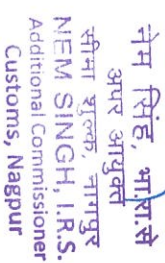 नेम सिंह, भा.रा.से
अपर आयुक्त
सीमा शुल्क, नागपुर
NEM SINGH, I.R.S.
Additional Commissioner
Customs, Nagpur